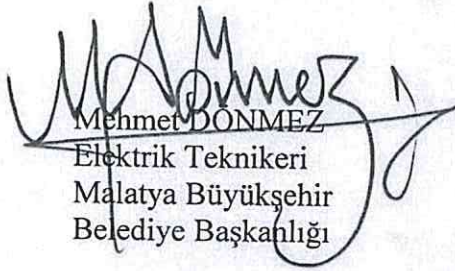 Mehmet DÖNMEZ
Elektrik Teknikeri
Malatya Büyükşehir
Belediye Başkanlığı